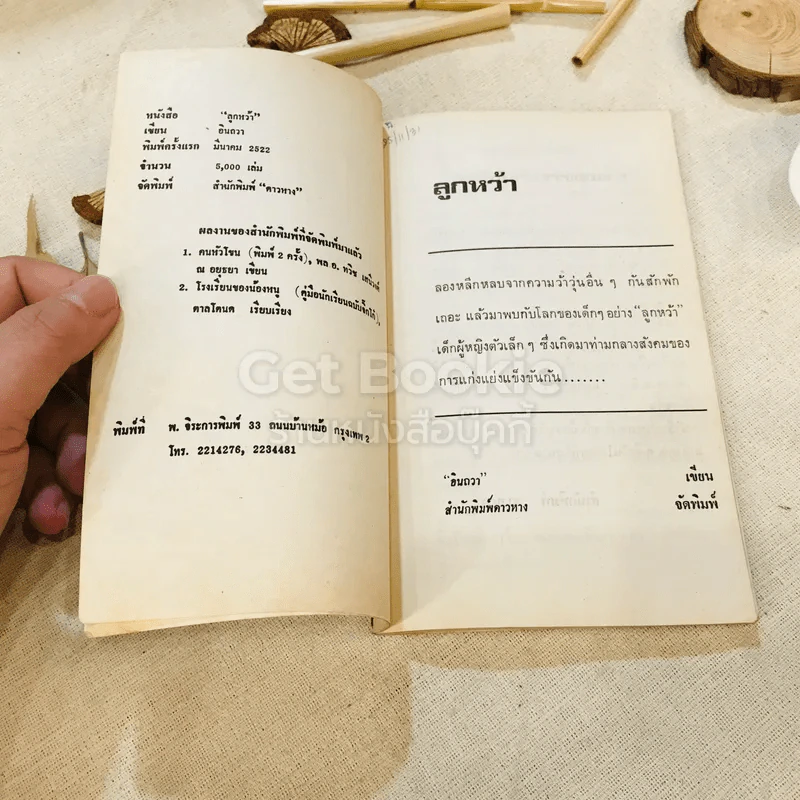 หนังสือ "ลูกหว้า"
เขียน อินถวา
พิมพ์ครั้งแรก มีนาคม 2522
จำนวน 5,000 เล่ม
จัดพิมพ์ สำนักพิมพ์ "ดาวหาง"
ผลงานของสำนักพิมพ์ที่จัดพิมพ์มาแล้ว
1. คนหัวโขน (พิมพ์ 2 ครั้ง), พล อ. ทวิช
ณ อยุธยา เขียน
2. โรงเรียนของน้องหนู (คู่มือนักเรียนฉบับจิ๊กโก๋),
ตาลโตนด เรียบเรียง
พิมพ์ที่ พ. จิระการพิมพ์ 33 ถนนบ้านหม้อ กรุงเทพ 2
โทร. 2214276, 2234481
ลูกหว้า
ลองหลีกหลบจากความว้าวุ่นอื่น ๆ กันสักพัก
เถอะ แล้วมาพบกับโลกของเด็กๆ อย่าง "ลูกหว้า"
เด็กผู้หญิงตัวเล็ก ๆ ซึ่งเกิดมาท่ามกลางสังคมของ
การแก่งแย่งแข็งขันกัน.......
"อินถวา" เขียน
สำนักพิมพ์ดาวหาง จัดพิมพ์
Get Bookie
ร้านหนังสือบุ๊คกี้